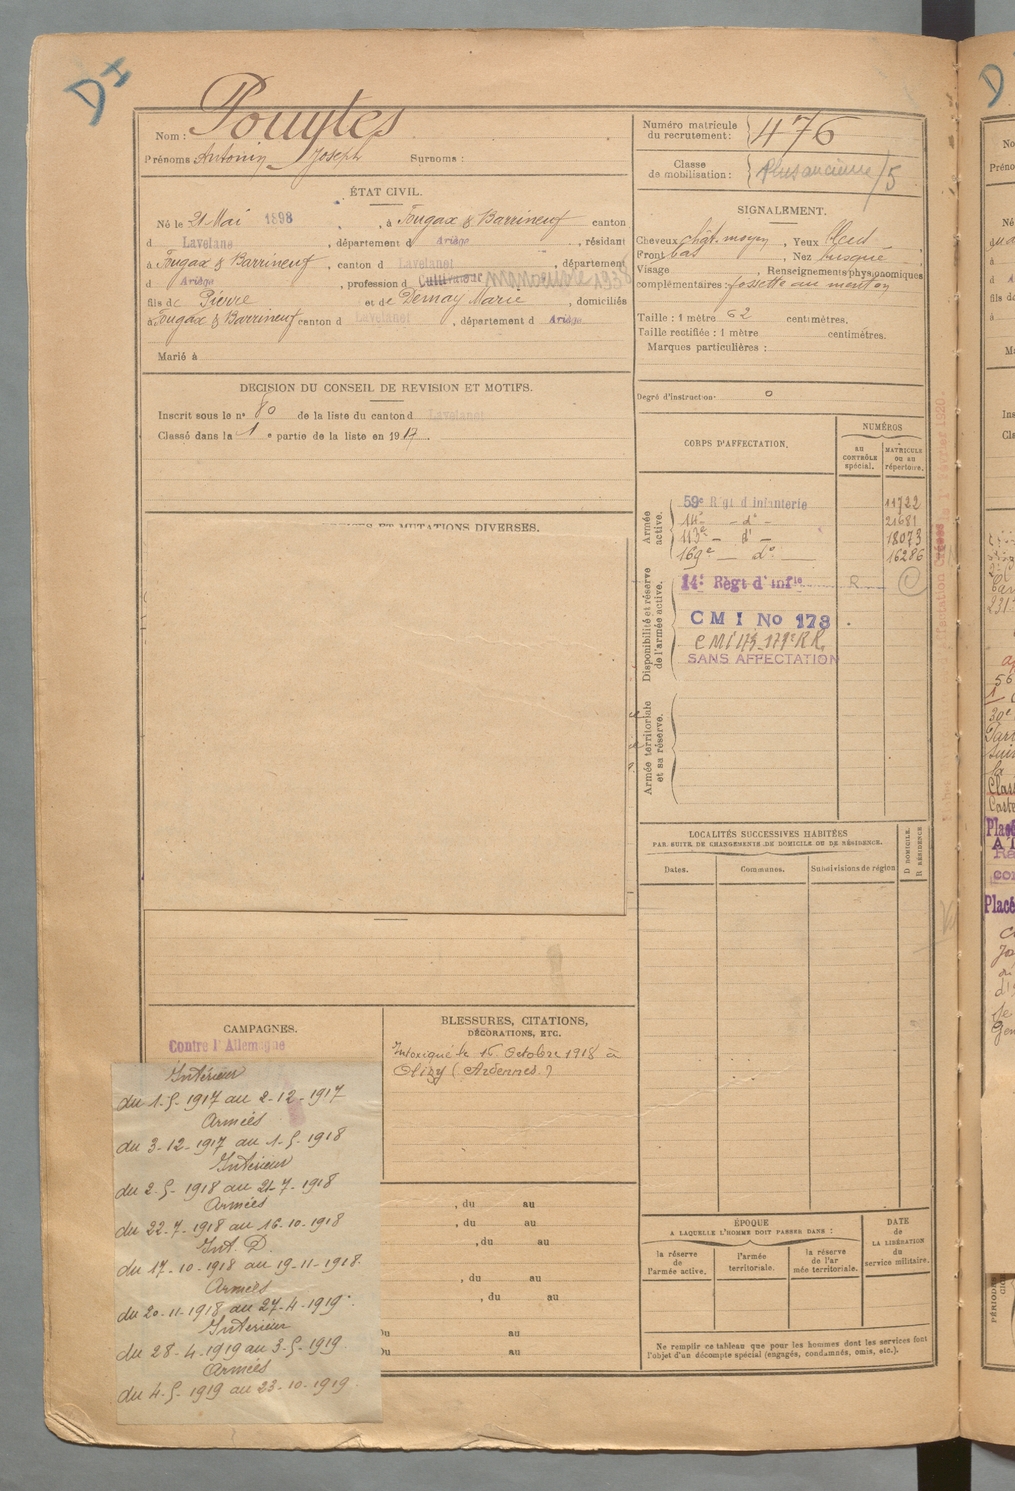 DI
Nom : Pouytes
Prénoms Antonin Joseph Surnoms :
Numéro matricule du recrutement : 476
Classe de mobilisation : Plus ancienne /5
ÉTAT CIVIL.
Né le 21 Mai 1898, à Fougax & Barrineuf canton
d Lavelanet, département d Ariège, résidant
à Fougax & Barrineuf, canton d Lavelanet, département
d Ariège, profession d Cultivateur manoeuvre 1938
fils de Pierre et de Dernay Marie, domiciliés
à Fougax & Barrineuf canton d Lavelanet, département d Ariège
Marié à
SIGNALEMENT.
Cheveux chât. moyen, Yeux bleus
Front bas, Nez busqué
Visage , Renseignements physionomiques
complémentaires : fossette au menton
Taille : 1 mètre 62 centimètres.
Taille rectifiée : 1 mètre centimètres.
Marques particulières :
Degré d'instruction : 0
DECISION DU CONSEIL DE REVISION ET MOTIFS.
Inscrit sous le n° 80 de la liste du canton d Lavelanet
Classé dans la 1 e partie de la liste en 1917.
ET MUTATIONS DIVERSES.
CORPS D'AFFECTATION.
NUMÉROS
au CONTRÔLE spécial.
MATRICULE ou au répertoire.
Armée active.
59e Régt d'Infanterie 11722
14e - d° - 21681
113e - d° - 18073
169e - d° 16286
Disponibilité et réserve de l'armée active.
14e Régt d'Infie R
C M I No 173
CMI 173 - 179e R.R.
SANS AFFECTATION
Armée territoriale et sa réserve.
LOCALITÉS SUCCESSIVES HABITÉES
PAR SUITE DE CHANGEMENTS DE DOMICILE OU DE RÉSIDENCE.
Dates.
Communes.
Subdivisions de région
D DOMICILE.
R RÉSIDENCE
CAMPAGNES.
Contre l'Allemagne
Intérieur
du 1-5-1917 au 2-12-1917
Armées
du 3-12-1917 au 1-5-1918
Intérieur
du 2-5-1918 au 21-7-1918
Armées
du 22-7-1918 au 16-10-1918
Int. D.
du 17-10-1918 au 19-11-1918
Armées
du 20-11-1918 au 27-4-1919
Intérieur
du 28-4-1919 au 3-5-1919
Armées
du 4-5-1919 au 23-10-1919
BLESSURES, CITATIONS,
DÉCORATIONS, ETC.
Intoxiqué le 16 Octobre 1918 à
Olizy (Ardennes)
, du au
, du au
, du au
, du au
, du au
Du au
Du au
ÉPOQUE
A LAQUELLE L'HOMME DOIT PASSER DANS :
la réserve de l'armée active.
l'armée territoriale.
la réserve de l'armée territoriale.
DATE de LA LIBÉRATION du service militaire.
Ne remplir ce tableau que pour les hommes dont les services font
l'objet d'un décompte spécial (engagés, condamnés, omis, etc.).